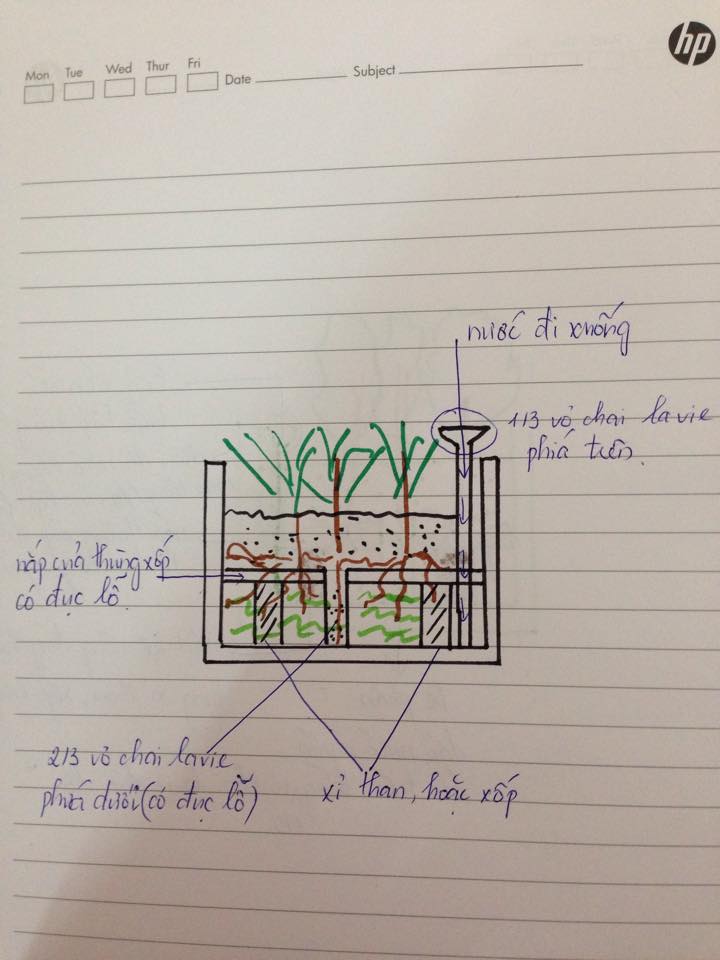 hp
Mon Tue Wed Thur Fri Date Subject
nước đi xuống
1/3 vỏ chai lavie
phía trên.
nắp của thùng xốp
có đục lỗ
2/3 vỏ chai lavie
phía dưới (có đục lỗ)
xỉ than, hoặc xốp